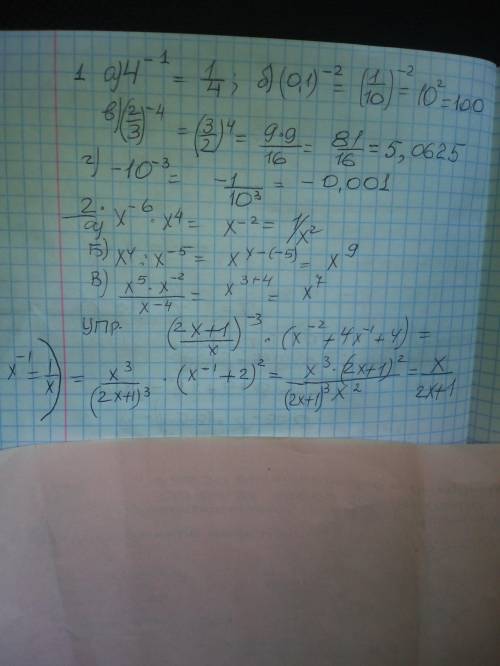 1 а) 4^-1 = 1/4; б) (0,1)^-2 = (1/10)^-2 = 10^2 = 100
в) (2/3)^-4 = (3/2)^4 = 9*9/16 = 81/16 = 5,0625
г) -10^-3 = -1/10^3 = -0,001
2. а) x^-6 · x^4 = x^-2 = 1/x^2
Б) x^4 : x^-5 = x^x-(-5) = x^9
В) x^5 · x^-2/x^-4 = x^3+4 = x^7
УПР. (2x+1/x)^-3 · (x^-2 + 4x^-1 + 4) =
x^-1 = 1/x) = x^3/(2x+1)^3 · (x^-1 + 2)^2 = x^3 · (2x+1)^2/(2x+1)^3 x^2 = x/2x+1